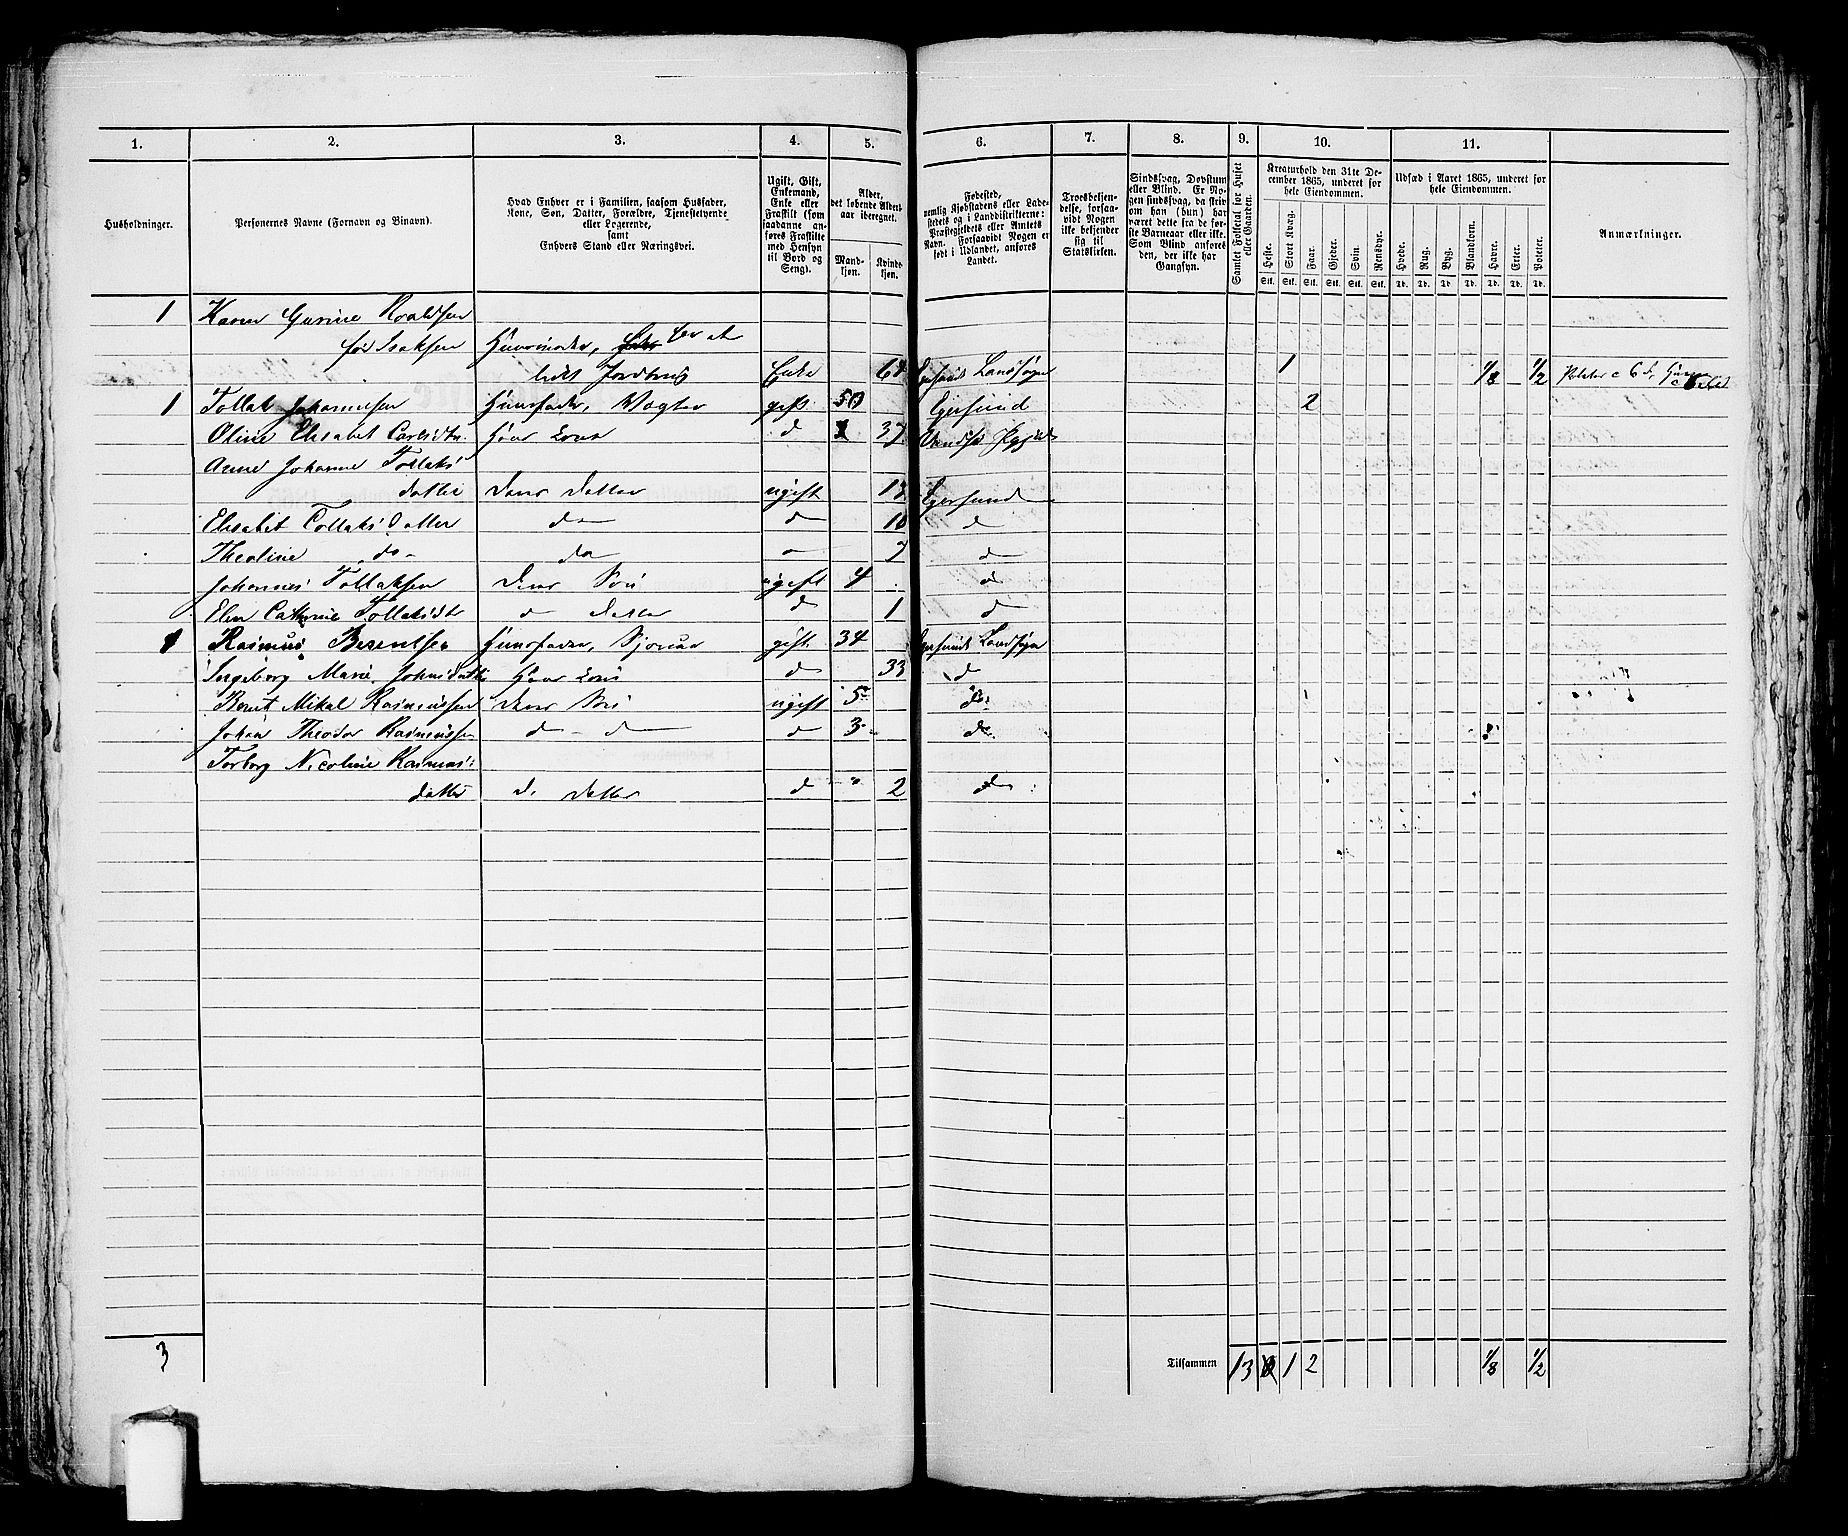 1. 2. 3. 4. 5. 6. 7. 8. 9. 10. 11.
Husholdninger.
Personernes Navne (Fornavn og Binavn).
Hvad Enhver er i Familien, saasom Husfader,
Kone, Søn, Datter, Forældre, Tjenestetyende
eller Logerende,
samt
Enhvers Stand eller Næringsvei.
Ugift, Gift,
Enkemand,
Enke eller
Fraskilt (som
saadanne an-
føres Fraskilte
med Hensyn
til Bord og
Seng).
Alder,
det løbende Alders-
aar iberegnet.
Mand-
kjøn.
Kvinde-
kjøn.
Fødested,
nemlig Kjøbstadens eller Lade-
stedets og i Landdistrikterne:
Præstegjeldets eller Amtets
Navn. Forsaavidt Nogen er
født i Udlandet, anføres
Landet.
Troesbekjen-
delse, forsaa-
vidt Nogen
ikke bekjender
sig til
Statskirken.
Sindssvag, Døvstum
eller Blind. Er No-
gen sindssvag, da skriv
om han (hun) har
været dette fra de før-
ste Barneaar eller ikke.
Som Blind anføres
den, der ikke har
Gangsyn.
Samlet Folketal for Huset
eller Gaarden.
Kreaturhold den 31te De-
cember 1865, underet for
hele Eiendommen.
Heste. Stort Kvæg. Faar. Gjeder. Svin. Rensdyr.
Stk. Stk. Stk. Stk. Stk. Stk.
Udsæd i Aaret 1865, underet for
hele Eiendommen.
Hvede. Rug. Byg. Blandkorn. Havre. Erter. Poteter.
Td. Td. Td. Td. Td. Td. Td.
Anmærkninger.
1 Karen Gurine Roaldsen
før Isaksen Huusmoder, Lever at
lidt Jordbrug Enke 64 Egersunds Landsogn 1 1/8 1/2
1 Tollak Johannesen Huusfader, Vogter gift 50 Egersund 2
Oline Elisabet Carlsdtr. Hans Kone d 37
Anne Johanne Tollaks
datter Deres Datter ugift 13 Egersund
Elisabet Tollaks Datter do d 10 d
Theoline do do 7 d
Johannes Tollaksen Deres Søn ugift 4 d
Elen Cathrine Tollaksdt d Datter d 1 d
1 Rasmus Berentsen Huusfader, Sjømand gift 34 Egersunds Landsogn
Ingeborg Marie Johnsdatter Hans Kone d 33 d
Berent Mikal Rasmussen Deres Søn ugift 5 do
Johan Theodor Rasmussen d d d 3 do
Torborg Nicoline Rasmus
datter d. Datter d " 2 do
3
Tilsammen 13 1 2 1/8 1/2